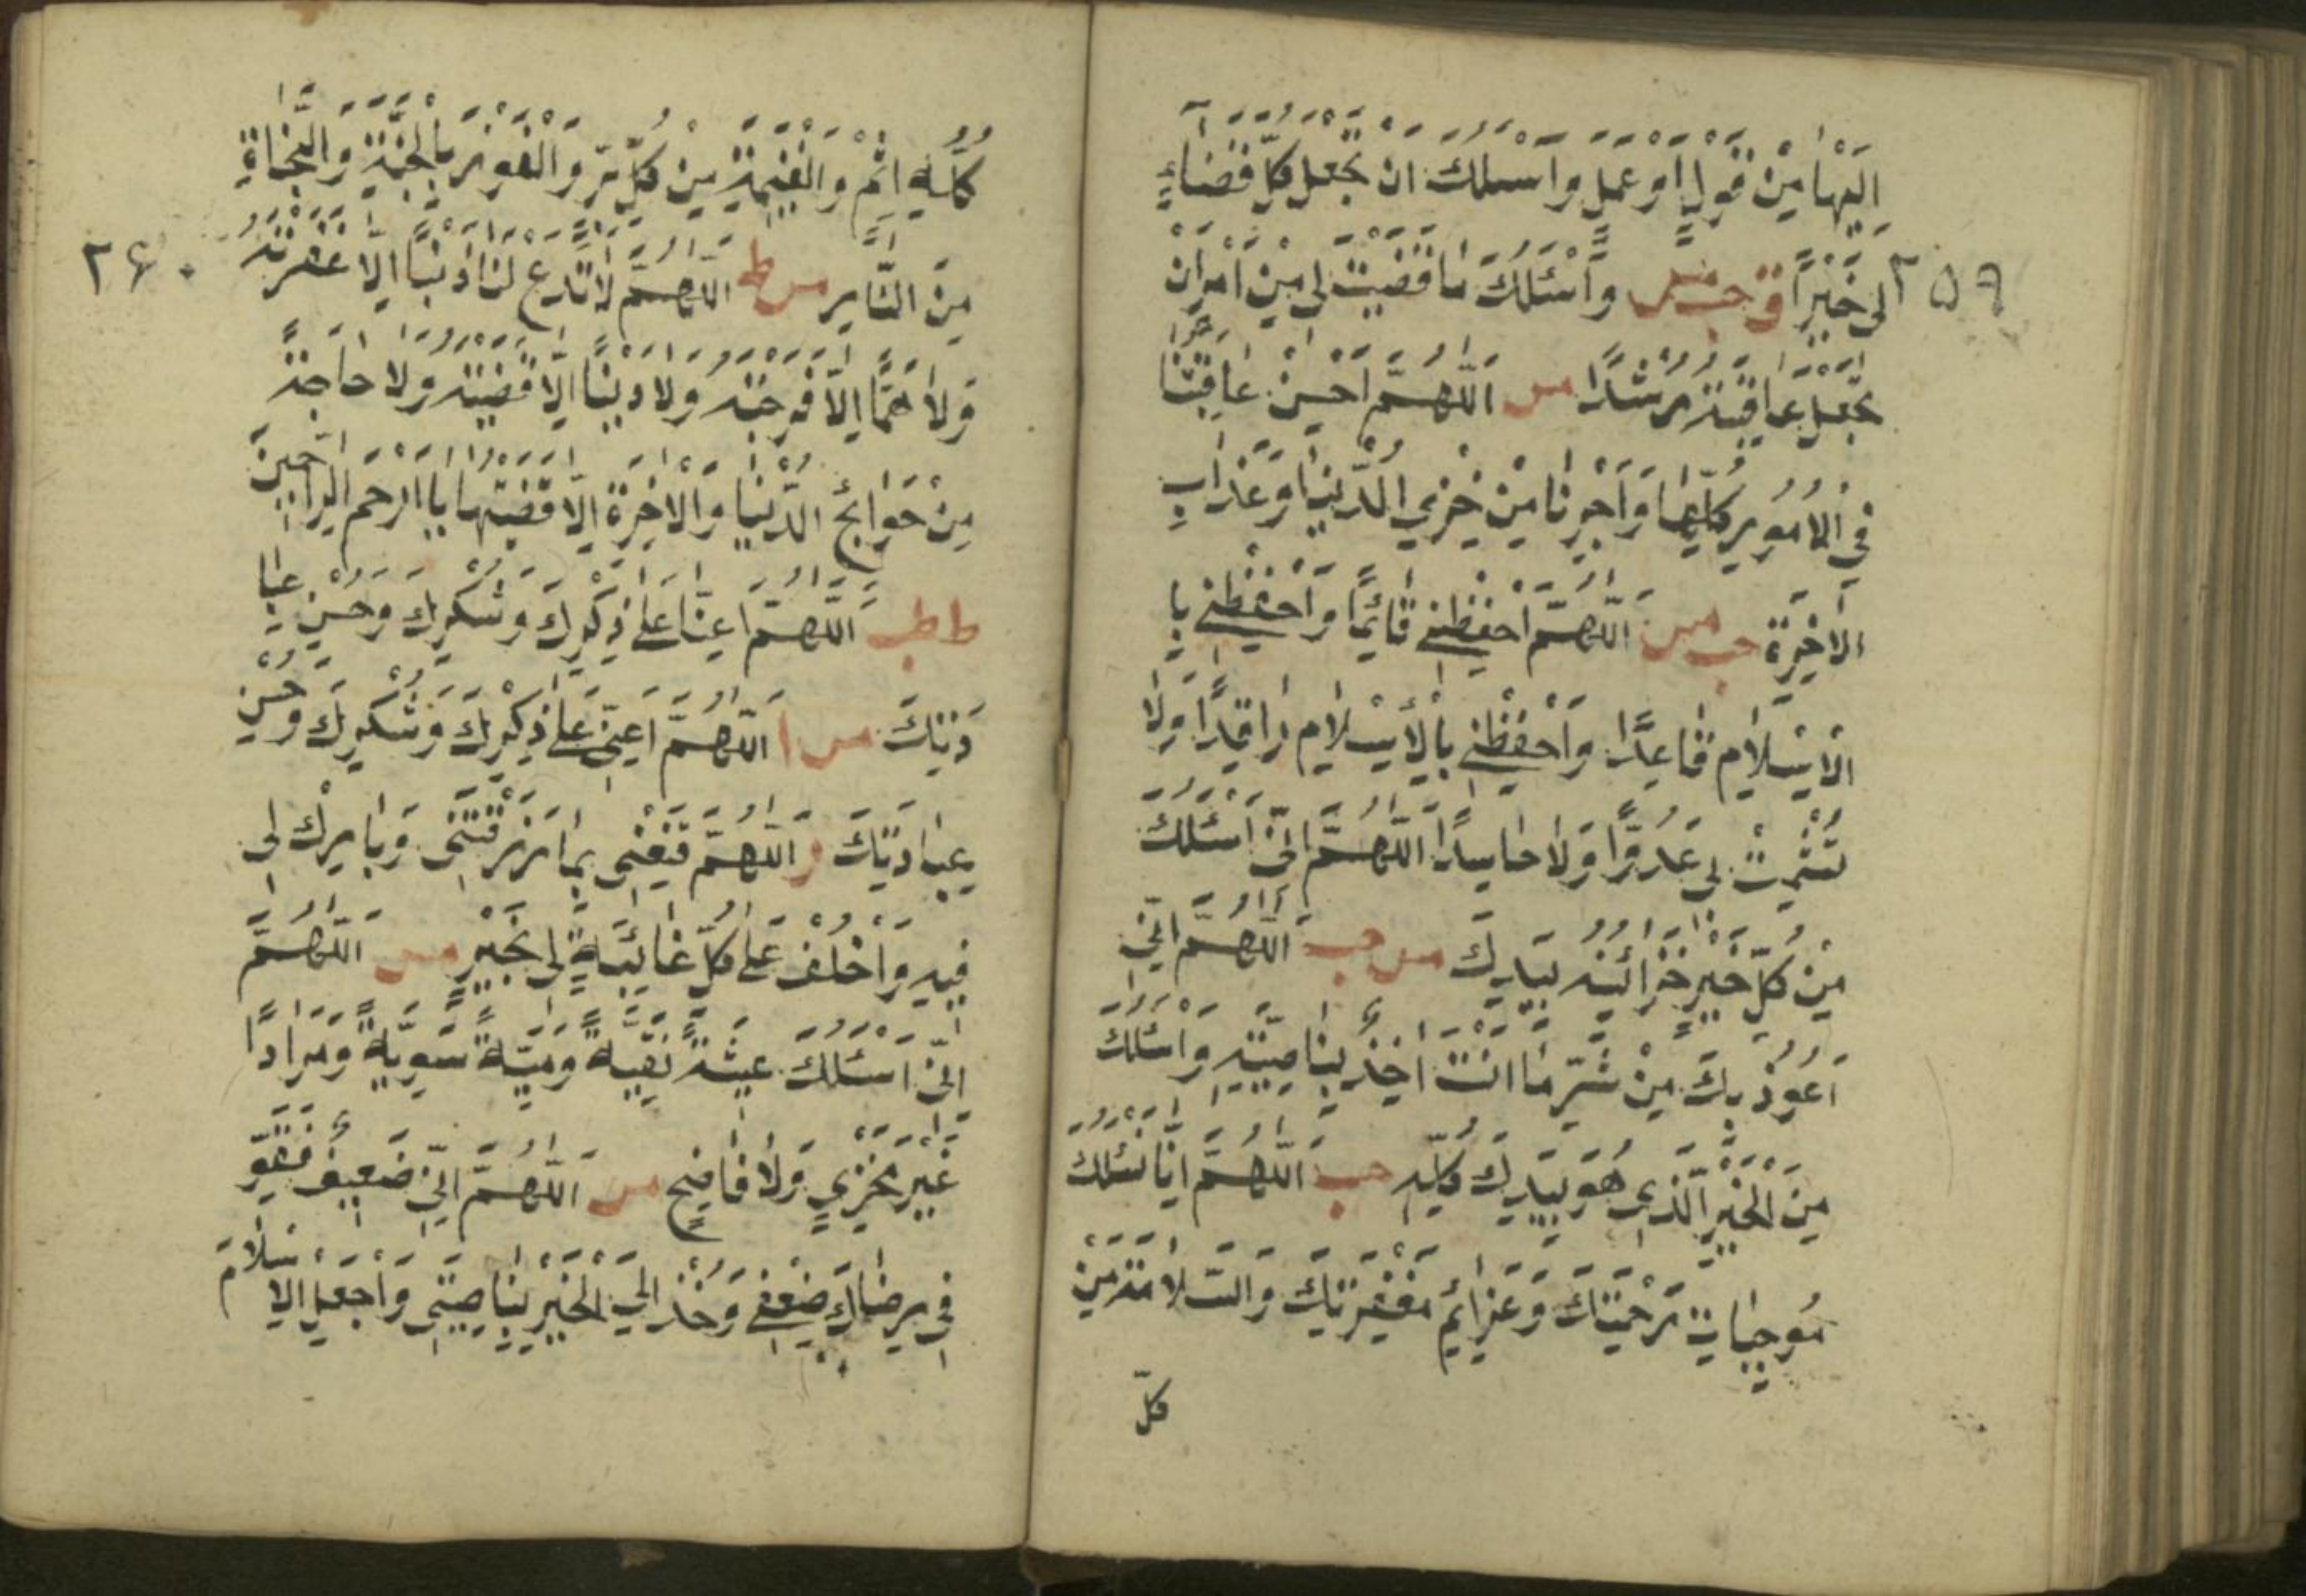 اِلَيْهَا مِنْ قَوْلٍ اَوْ عَمَلٍ وَاَسْئَلُكَ اَنْ تَجْعَلَ كُلَّ قَضَاءٍ
٢٥٩
لِى خَيْرًا ق حب مس وَاَسْئَلُكَ مَا قَضَيْتَ لِى مِنْ اَمْرٍ اَنْ
تَجْعَلَ عَاقِبَتَهُ رُشْدًا مس اَللّٰهُمَّ اَحْسِنْ عَاقِبَتَنَا
فِى الْاُمُورِ كُلِّهَا وَاَجِرْنَا مِنْ خِزْىِ الدُّنْيَا وَعَذَابِ
الْاٰخِرَةِ حب مس اَللّٰهُمَّ احْفَظْنِى قَائِمًا وَاحْفَظْنِى بِا
الْاِسْلَامِ قَاعِدًا وَاحْفَظْنِى بِالْاِسْلَامِ رَاقِدًا وَلَا
تُشْمِتْ لِى عَدُوًّا وَلَا حَاسِدًا اَللّٰهُمَّ اِنِّى اَسْئَلُكَ
مِنْ كُلِّ خَيْرٍ خَزَائِنُهُ بِيَدِكَ مس حب اَللّٰهُمَّ اِنِّى
اَعُوذُ بِكَ مِنْ شَرِّ مَا اَنْتَ اٰخِذٌ بِنَاصِيَتِهِ وَاَسْئَلُكَ
مِنَ الْخَيْرِ الَّذِى هُوَ بِيَدِكَ كُلِّهِ حب اَللّٰهُمَّ اِنَّا نَسْئَلُكَ
مُوجِبَاتِ رَحْمَتِكَ وَعَزَائِمَ مَغْفِرَتِكَ وَالسَّلَامَةَ مِنْ
كلّ
كُلِّ اِثْمٍ وَالْغَنِيمَةَ مِنْ كُلِّ بِرٍّ وَالْفَوْزَ بِالْجَنَّةِ وَالنَّجَاةَ
٢٦٠
مِنَ النَّارِ مس ط اَللّٰهُمَّ لَا تَدَعْ لَنَا ذَنْبًا اِلَّا غَفَرْتَهُ
وَلَا هَمًّا اِلَّا فَرَّجْتَهُ وَلَا دَيْنًا اِلَّا قَضَيْتَهُ وَلَا حَاجَةً
مِنْ حَوَائِجِ الدُّنْيَا وَالْاٰخِرَةِ اِلَّا قَضَيْتَهَا يَا اَرْحَمَ الرَّاحِمِينَ
ط طب اَللّٰهُمَّ اَعِنَّا عَلٰى ذِكْرِكَ وَشُكْرِكَ وَحُسْنِ عِبَا
دَتِكَ مس ا اَللّٰهُمَّ اَعِنِّى عَلٰى ذِكْرِكَ وَشُكْرِكَ وَحُسْنِ
عِبَادَتِكَ ر اَللّٰهُمَّ قَنِّعْنِى بِمَا رَزَقْتَنِى وَبَارِكْ لِى
فِيهِ وَاخْلُفْ عَلٰى كُلِّ غَائِبَةٍ لِى بِخَيْرٍ مس اَللّٰهُمَّ
اِنِّى اَسْئَلُكَ عِيشَةً نَقِيَّةً وَمِيتَةً سَوِيَّةً وَمَرَدًّا
غَيْرَ مُخْزِىٍ وَلَا فَاضِحٍ مس اَللّٰهُمَّ اِنِّى ضَعِيفٌ فَقَوِّ
فِى رِضَاكَ ضَعْفِى وَخُذْ اِلَى الْخَيْرِ بِنَاصِيَتِى وَاجْعَلِ الْاِسْلَامَ